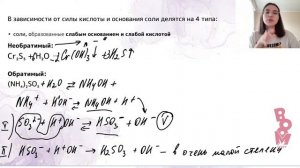 В зависимости от силы кислоты и основания соли делятся на 4 типа:
• соли, образованные слабым основанием и слабой кислотой
Необратимый:
Cr₂S₃ + H₂O → Cr(OH)₃↓ + H₂S↑
Обратимый:
(NH₄)₂SO₃ + H₂O ⇄ NH₄OH +
NH₄⁺ + HOH ⇄ NH₄OH + H⁺
I) SO₃²⁻ + H⁺OH⁻ ⇄ HSO₃⁻ + OH⁻ V
II) HSO₃⁻ + H⁺OH⁻ → H₂SO₃ + OH⁻ – в очень малой степени